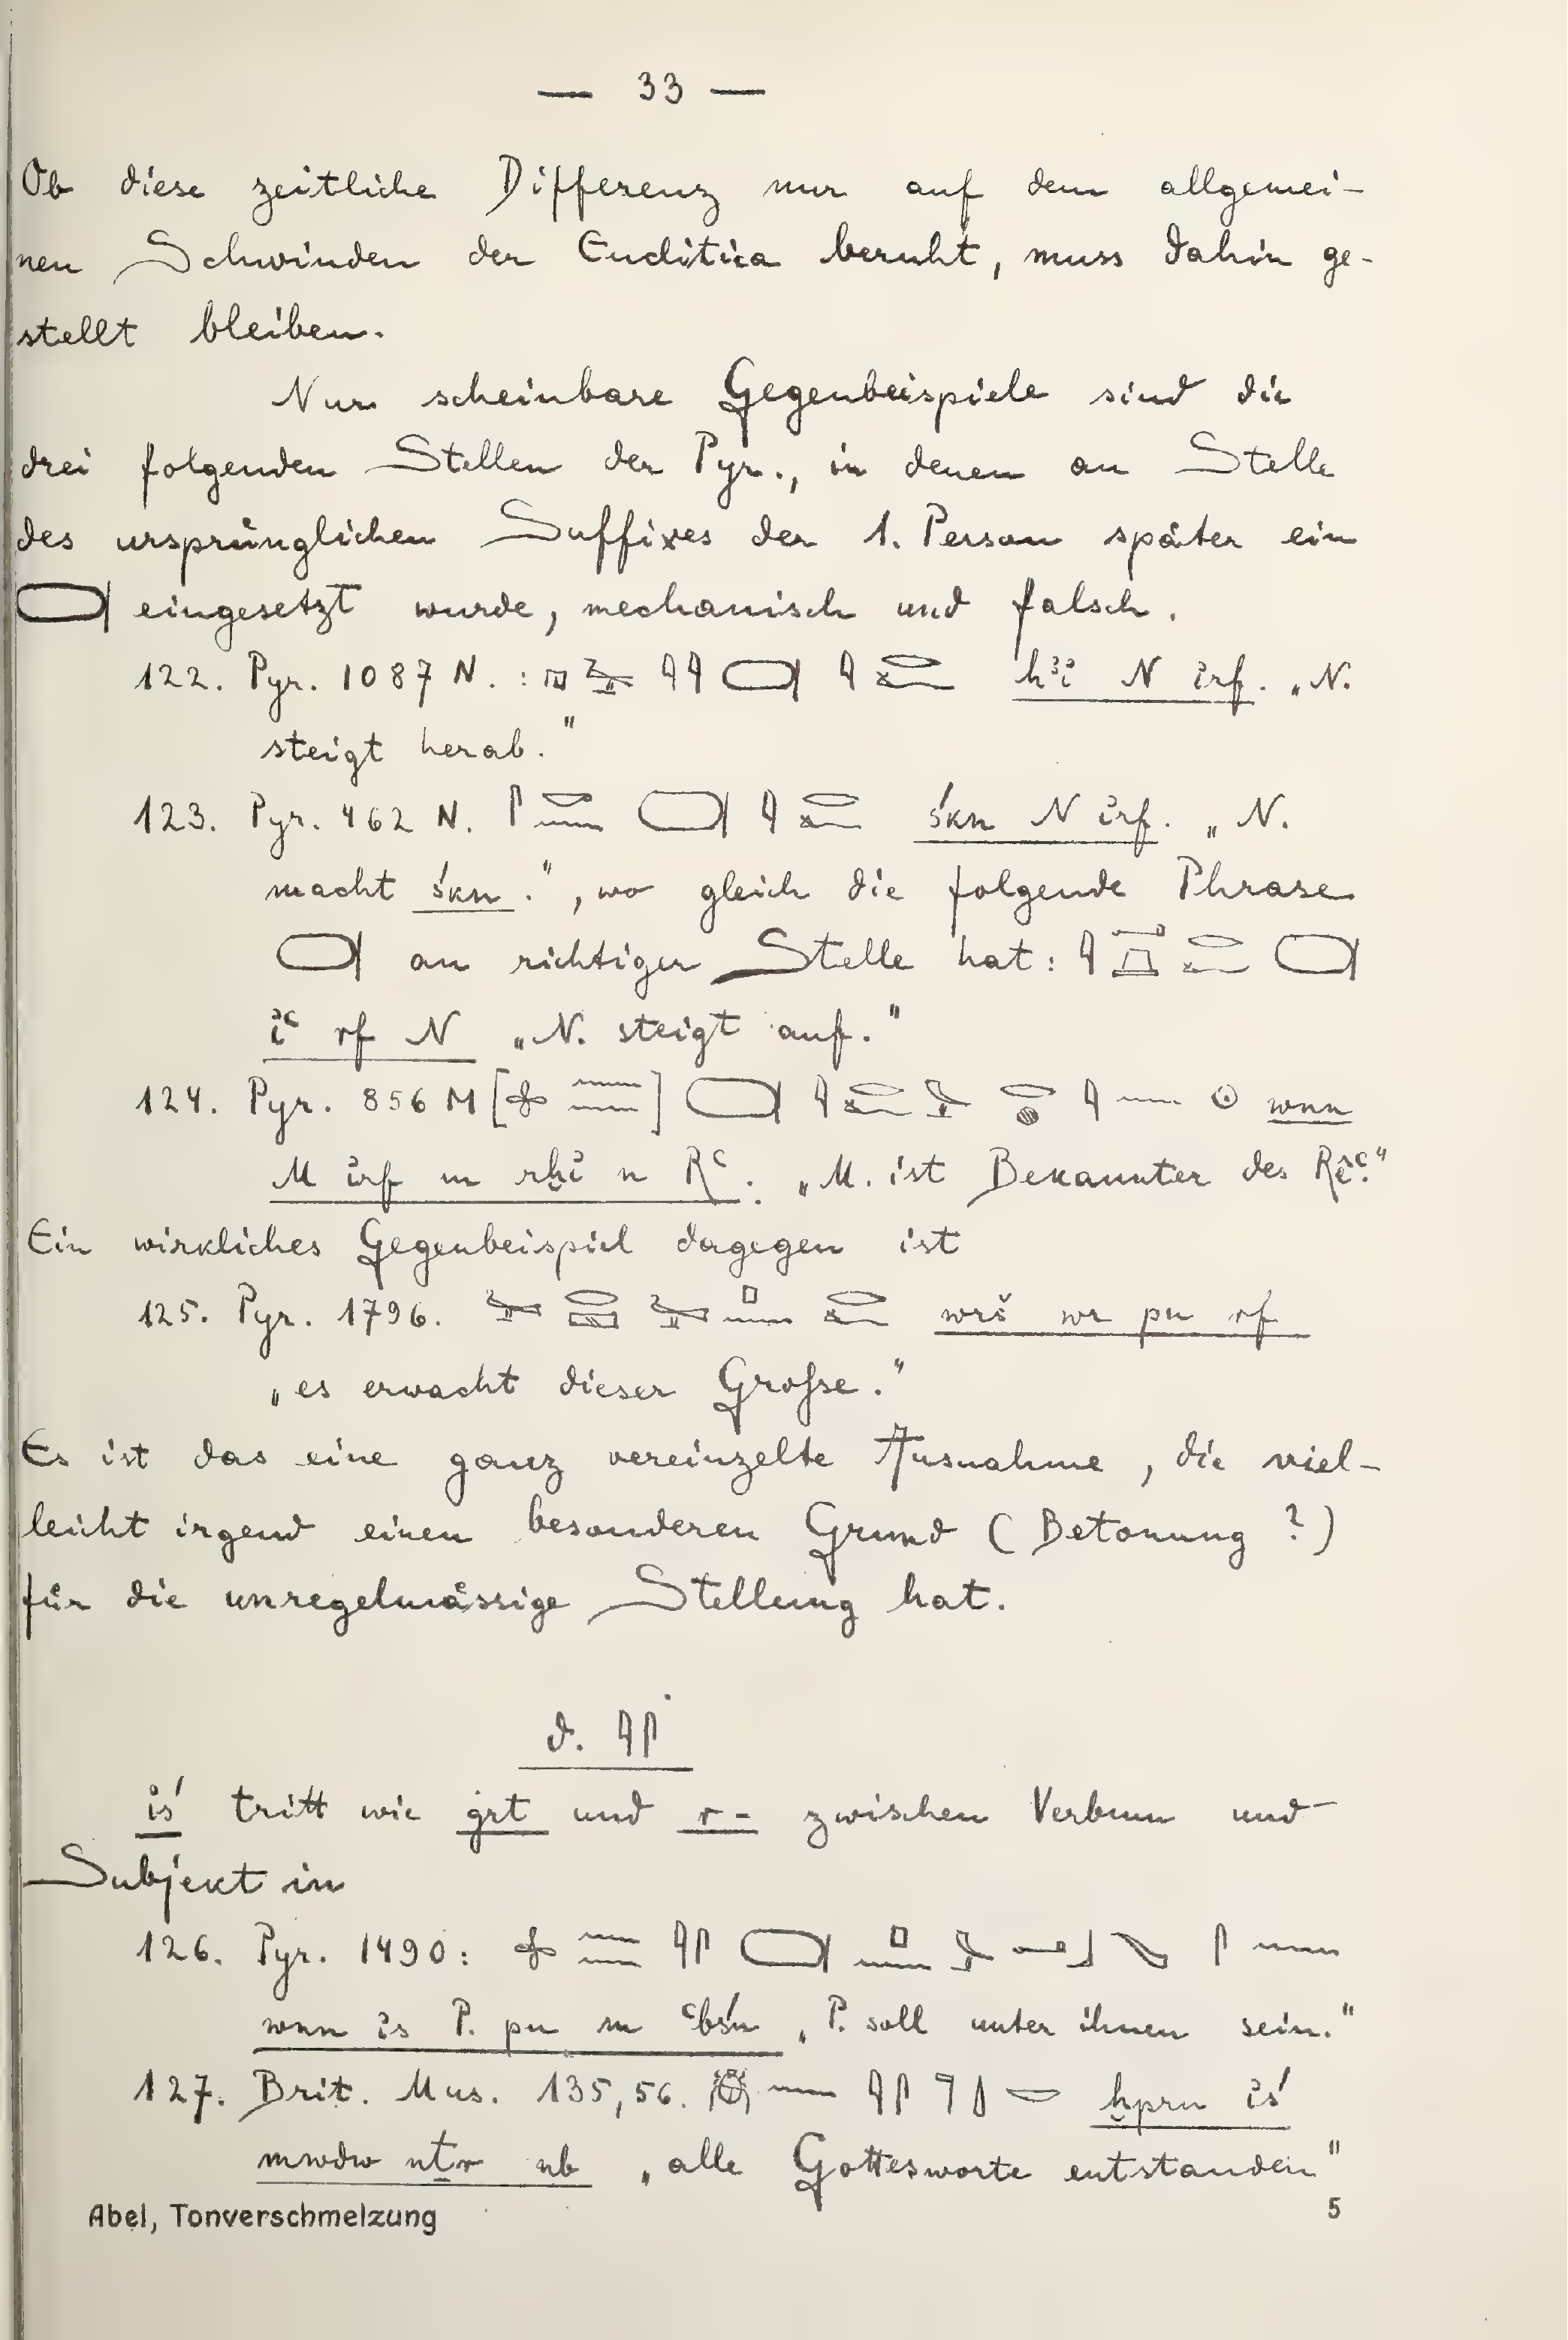 — 33 —
Ob diese zeitliche Differenz nur auf dem allgemei-
nen Schwinden der Enclitica beruht, muss dahin ge-
stellt bleiben.
Nur scheinbare Gegenbeispiele sind die
drei folgenden Stellen der Pyr., in denen an Stelle
des ursprünglichen Suffixes der 1. Person später ein
𓍷 eingesetzt wurde, mechanisch und falsch.
122. Pyr. 1087 N. : 𓉔𓅱 𓇋𓇋 𓍷 𓇋𓂋𓆑 hꜣi̓ N i̓rf. „N.
steigt herab."
123. Pyr. 462 N. 𓋴𓂋𓈖 𓍷 𓇋𓂋𓆑 śkn N i̓rf. „N.
macht śkn.", wo gleich die folgende Phrase
𓍷 an richtiger Stelle hat: 𓇋𓂝 𓂋𓆑 𓍷
i̓ꜥ rf N „N. steigt auf."
124. Pyr. 856 M [𓃹𓈖𓈖] 𓍷 𓇋𓂋𓆑𓅓 𓂋𓐍 𓇋 𓈖 𓇳 wnn
M i̓rf m rḫi̓ n Rꜥ. „M. ist Bekannter des Rēꜥ."
Ein wirkliches Gegenbeispiel dagegen ist
125. Pyr. 1796. 𓅱𓂋𓈙 𓅱 𓊪𓈖 𓂋𓆑 wrš wr pn rf
„es erwacht dieser Große."
Es ist das eine ganz vereinzelte Ausnahme, die viel-
leicht irgend einen besonderen Grund (Betonung ?)
für die unregelmässige Stellung hat.
d. 𓇋𓋴
i̓ś tritt wie grt und r= zwischen Verbum und
Subjekt in
126. Pyr. 1490: 𓃹𓈖𓈖 𓇋𓋴 𓍷 𓊪𓈖 𓅓 𓂝𓃀 𓋴𓈖
wnn i̓s P. pn m ꜥbśn „P. soll unter ihnen sein."
127. Brit. Mus. 135,56. 𓆣𓈖 𓇋𓋴 𓊹𓌃 𓎟 ḫprn i̓ś
mwdw nṯr nb „alle Gottesworte entstanden"
Abel, Tonverschmelzung 5